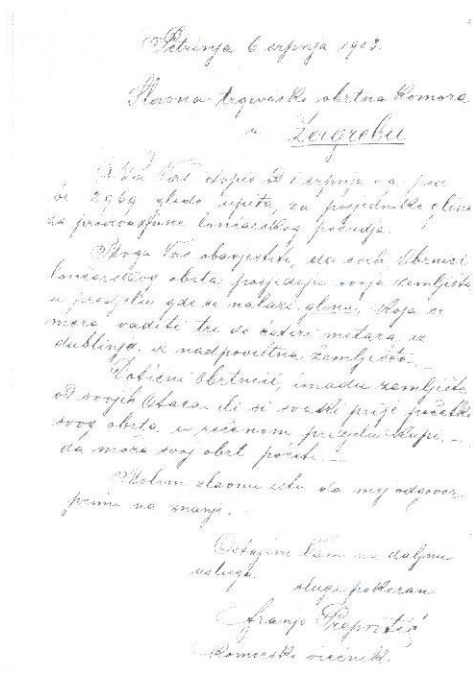 Petrinja 6 srpnja 1903.
Slavna trgovačko obrtna Komora
u Zagrebu
Na Vaš dopis od 1 srpnja o.g. pod
br 2969 glede upita, za posjednike gline
za lončarskog posudja.
Stoga Vas obavjestiti, da svih Obrtnici
lončarskog obrta, posjeduju svoja zemljišta
u predjelu gde se nalazi glina, koja se
mora vaditi tri do četeri metara iz
dubljine, iz zemljišta.
Obrtnici, imadu zemljišta
od svojih Otaca ili si svaki prije početka
svog obrta, u rečenom predjelu kupi,
da može svoj obrt početi.
Molim slavnu istu da moj odgovor
primi na znanje.
Ostajem Vam na daljnu
uslugu.
sluga pokoran
Franjo
Komorski viećnik.